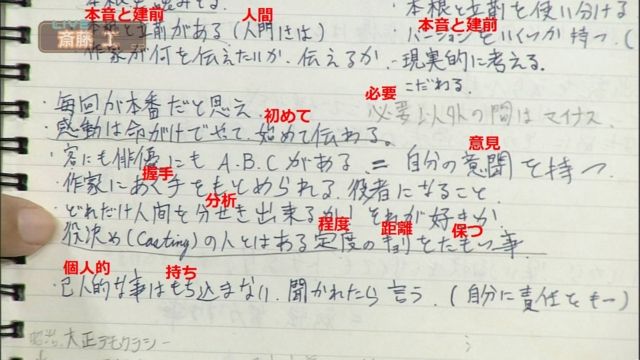 本音と建前 人間
本音と建前
本根と立前を使い分ける
斎藤 工
本根と立前がある(人門きは)
・バージョンをいくつか持つ.(
作家が何を伝えたいか.伝えるか.
現実的に考える.
こだわる.
必要
・毎回が本番だと思え
必要以外の間はマイナス
初めて
・感動は命がけでやって始めて伝わる。
意見
・客にも俳優にも A.B.Cがある.=自分の意聞を持つ.
握手
・作家にあく手をもとめられる.役者になること
分析
・どれだけ人間を分せき出来るか!それが好きか
程度 距離 保つ
役決め(Casting)の人とはある定度のキョリをたもつ事.
個人的 持ち
・己人的な事はもち込まない.聞かれたら言う.(自分に責任をもー)
大正デモクラシー